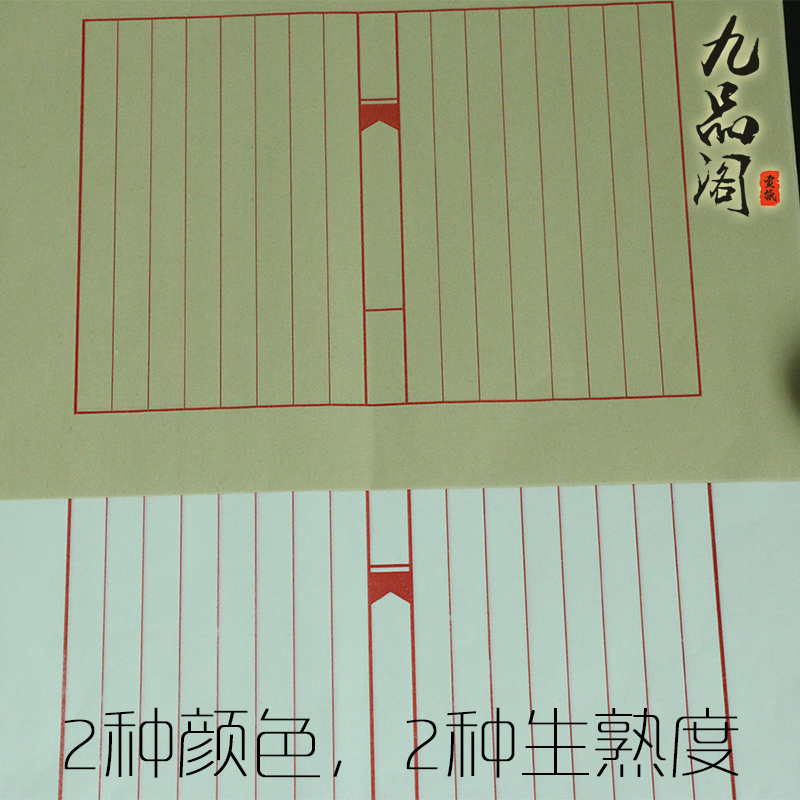 九品阁
2种颜色，2种生熟度